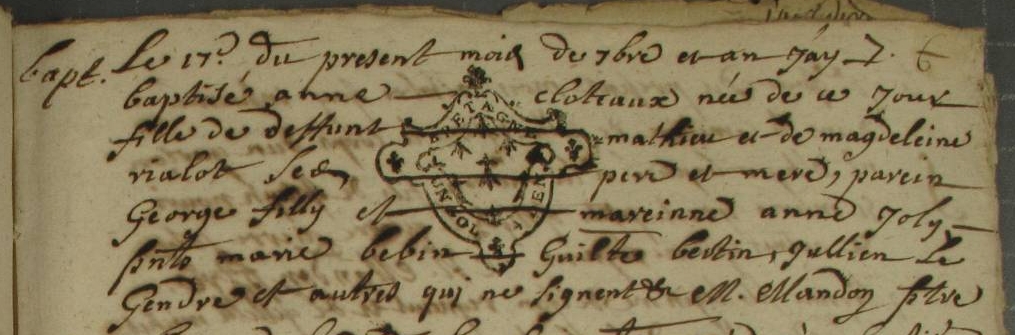 bapt. Le 17e. du present mois de 7bre et an Jay
baptisé anne cloteaux née de ce Jour
fille de deffunt mathieu et de magdeleine
rialot ses pere et mere, parein
George filly et mareinne anne Joly
pnts marie bebin Guilte bertin, Jullien Le
Gendre et autres qui ne signent & M. Mandon ptre
BRETAGNE